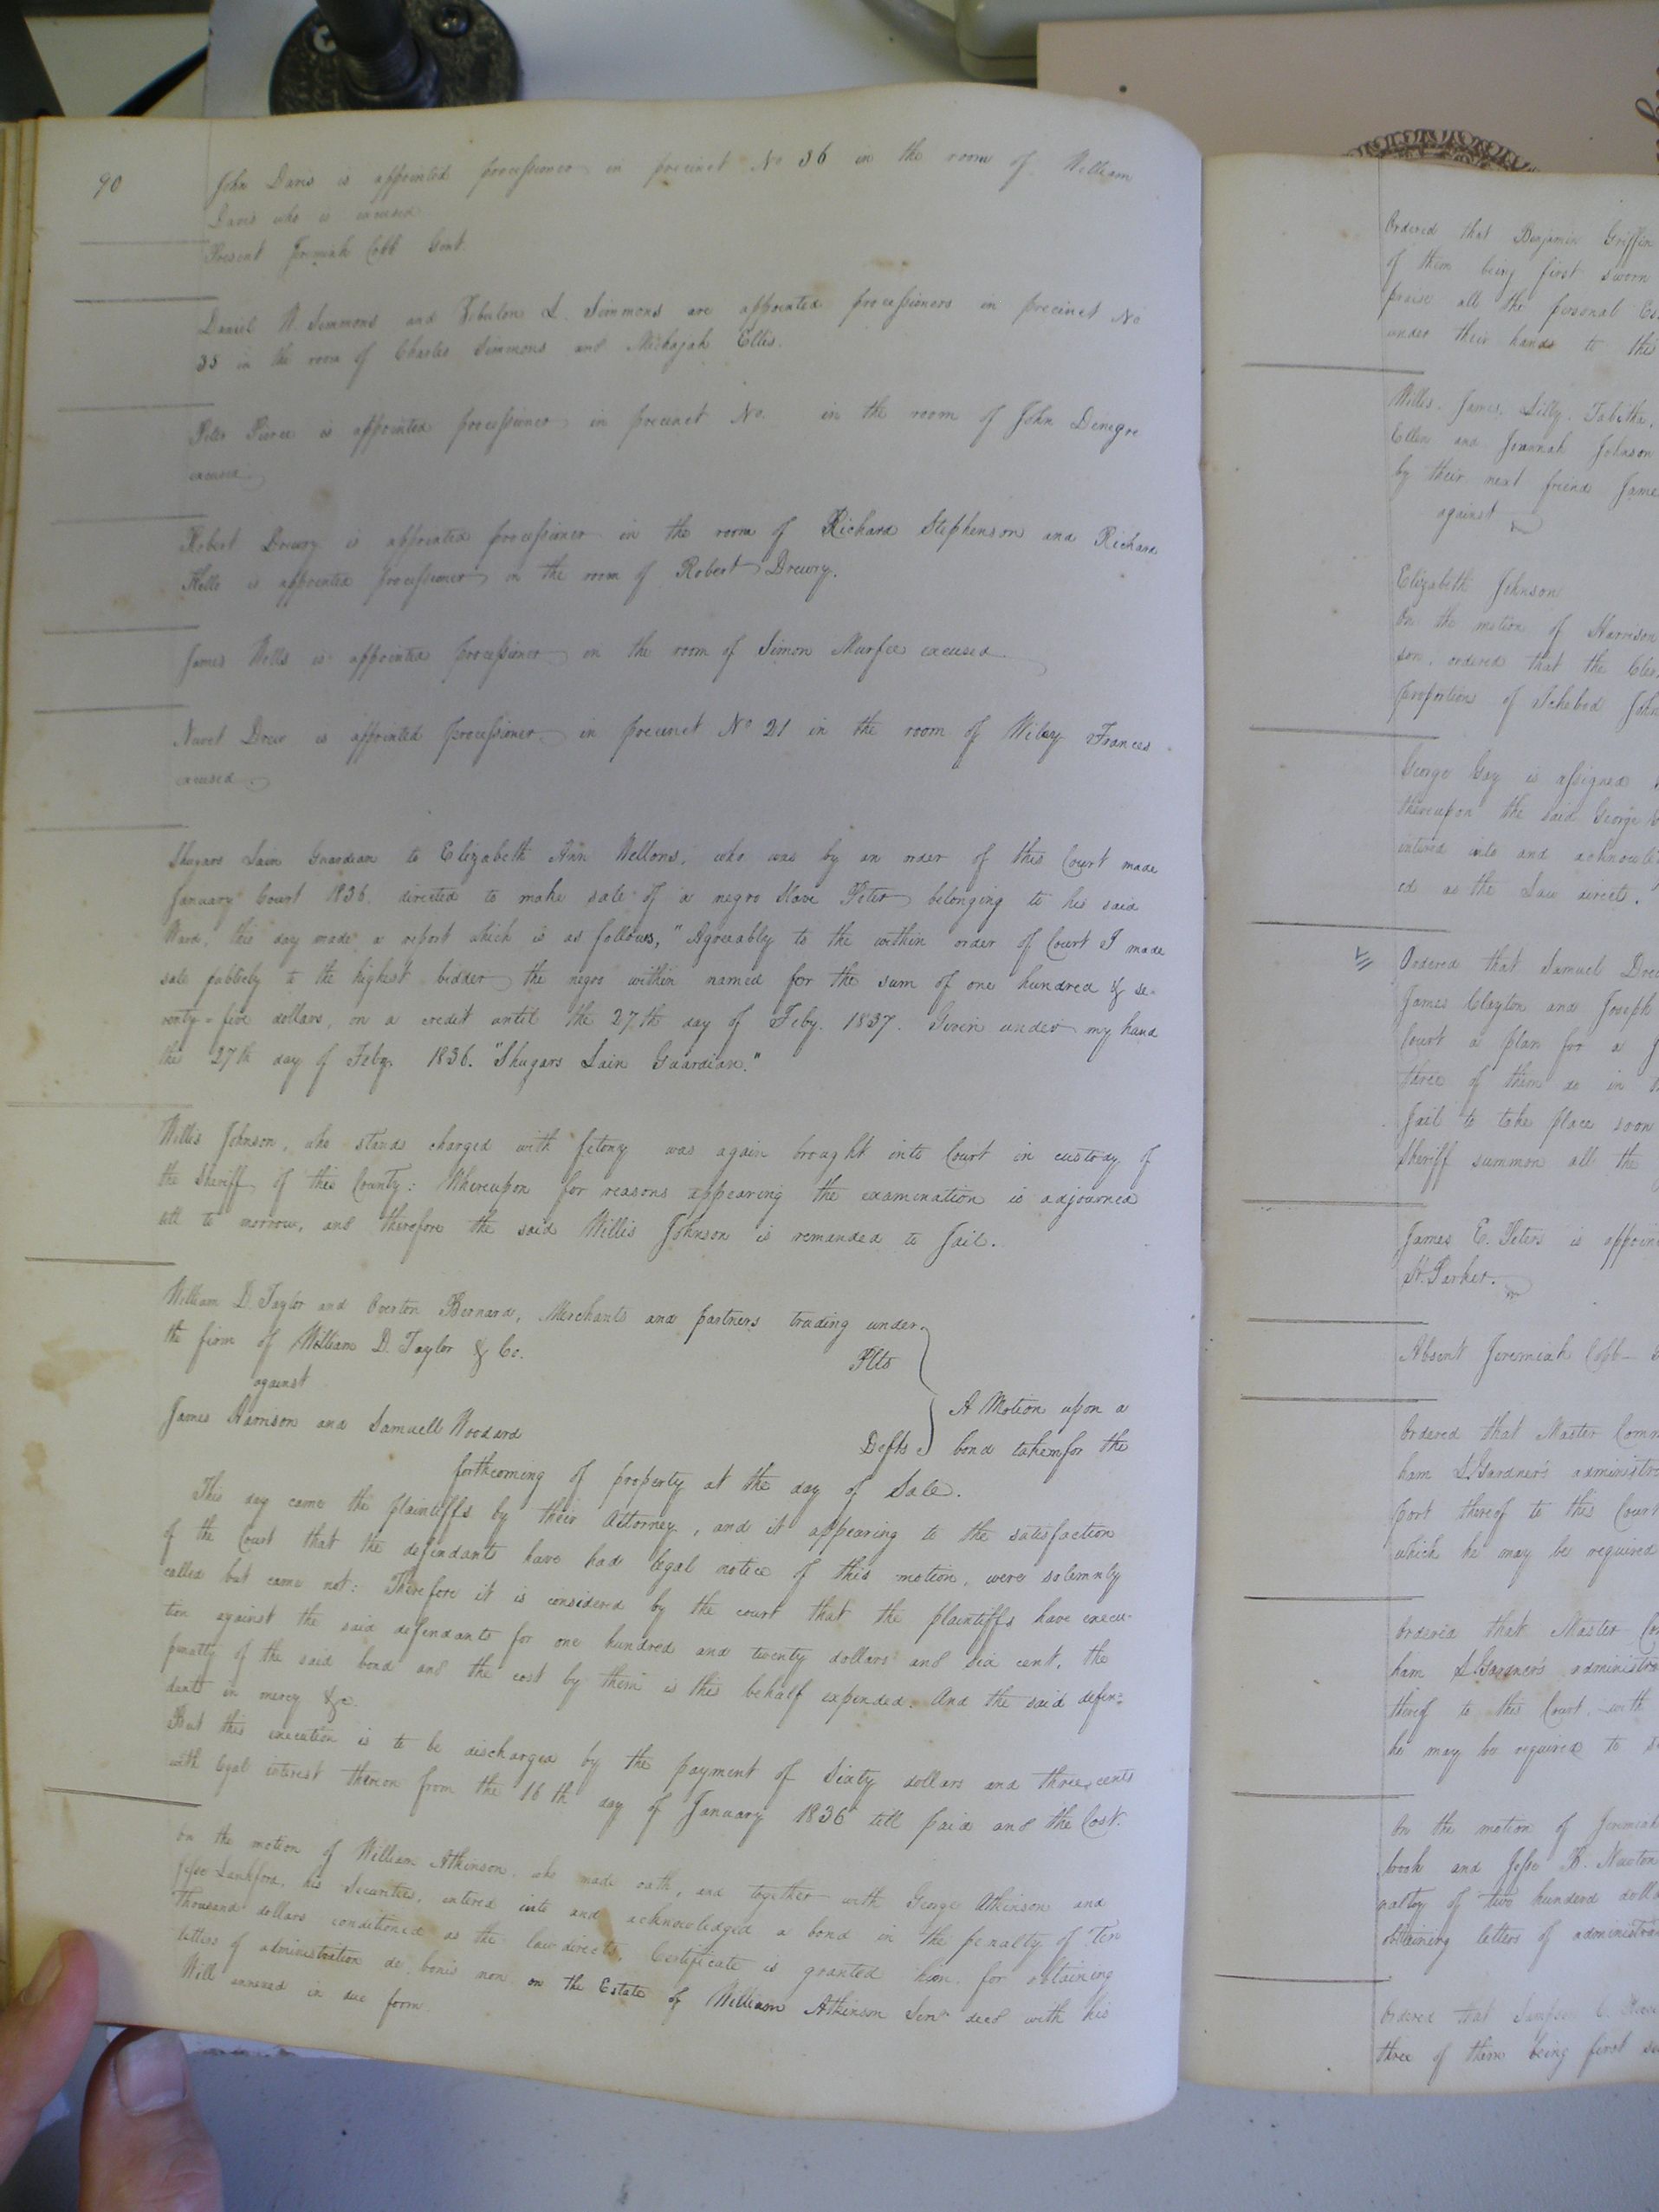 90
John Davis is appointed processioner in precinct No 36 in the room of William
Davis who is excused
Present Jeremiah Cobb Gent.
Daniel W. Simmons and L. Simmons are appointed processioners in precinct No
35 in the room of Charles Simmons and Michajah Ellis.
Peter Pierce is appointed processioner in precinct No. in the room of John Denegre
excused.
Robert Drewry is appointed processioner in the room of Richard Stephenson and Richard
is appointed processioner in the room of Robert Drewry.
James Wells is appointed processioner in the room of Simon Murfee excused
Newet Drew is appointed processioner in precinct No 21 in the room of Wiley Frances
excused
Shugars Lain Guardian to Elizabeth Ann Nellons, who was by an order of this Court made
January Court 1836. directed to make sale of a negro slave Peter belonging to his said
Ward, this day made a report which is as follows, "Agreeably to the within order of Court I made
sale publicly to the highest bidder the negro within named for the sum of one hundred & se-
venty-five dollars, on a credit until the 27th day of Feby. 1837. Given under my hand
this 27th day of Feby. 1836. "Shugars Lain Guardian."
Willis Johnson, who stands charged with felony was again brought into Court in custody of
the Sheriff of this County: Whereupon for reasons appearing the examination is adjourned
till to morrow, and therefore the said Willis Johnson is remanded to Jail.
William D. Taylor and Overton Bernard, Merchants and partners trading under
the firm of William D. Taylor & Co. Plts
against
James Harrison and Samuell Woodard Defts A Motion upon a
bond taken for the
forthcoming of property at the day of Sale.
This day came the plaintiffs by their Attorney, and it appearing to the satisfaction
of the Court that the defendants have had legal notice of this motion, were solemnly
called but came not: Therefore it is considered by the court that the plaintiffs have execu-
tion against the said defendants for one hundred and twenty dollars and six cent, the
penalty of the said bond and the cost by them is this behalf expended. And the said defen-
dants in mercy &c.
But this execution is to be discharged by the payment of Sixty dollars and three cents
with legal interest thereon from the 16th day of January 1836 till paid and the Cost.
On the motion of William Atkinson who made oath, and together with George Atkinson and
Jesse Lankford, his Securities, entered into and acknowledged a bond in the penalty of Ten
Thousand dollars conditioned as the law directs, Certificate is granted him for obtaining
letters of administration de bonis non on the Estate of William Atkinson Senr decd with his
Will annexed in due form.
Ordered that Benjamin Griffin
of them being first sworn
praise all the personal Es
under their hands to this
Willis. James. Lilly. Tabitha.
Ellen and Joannah Johnson
by their next friend Jame
against
Elizabeth Johnson
On the motion of Harrison
son, ordered that the Cler
proportion of Ichabod John
George Gay is assigned
thereupon the said George
entered into and acknowle
ed as the Law directs.
Ordered that Samuel Drew
James Clayton and Joseph
Court a plan for a J
three of them as in
Jail to take place soon
Sheriff summon all the
James E. Peters is appoin
H. Parker.
Absent Jeremiah Cobb
Ordered that Master Comm
ham L. Gardner's administra
port thereof to this Court
which he may be required
Ordered that Master Co
ham L. Gardner's administra
thereof to this Court, with
he may be required to s
On the motion of Jeremiah
brook and Jesse B. Newton
nalty of two hundred dolla
obtaining letters of administra
Ordered that C.
three of them being first s